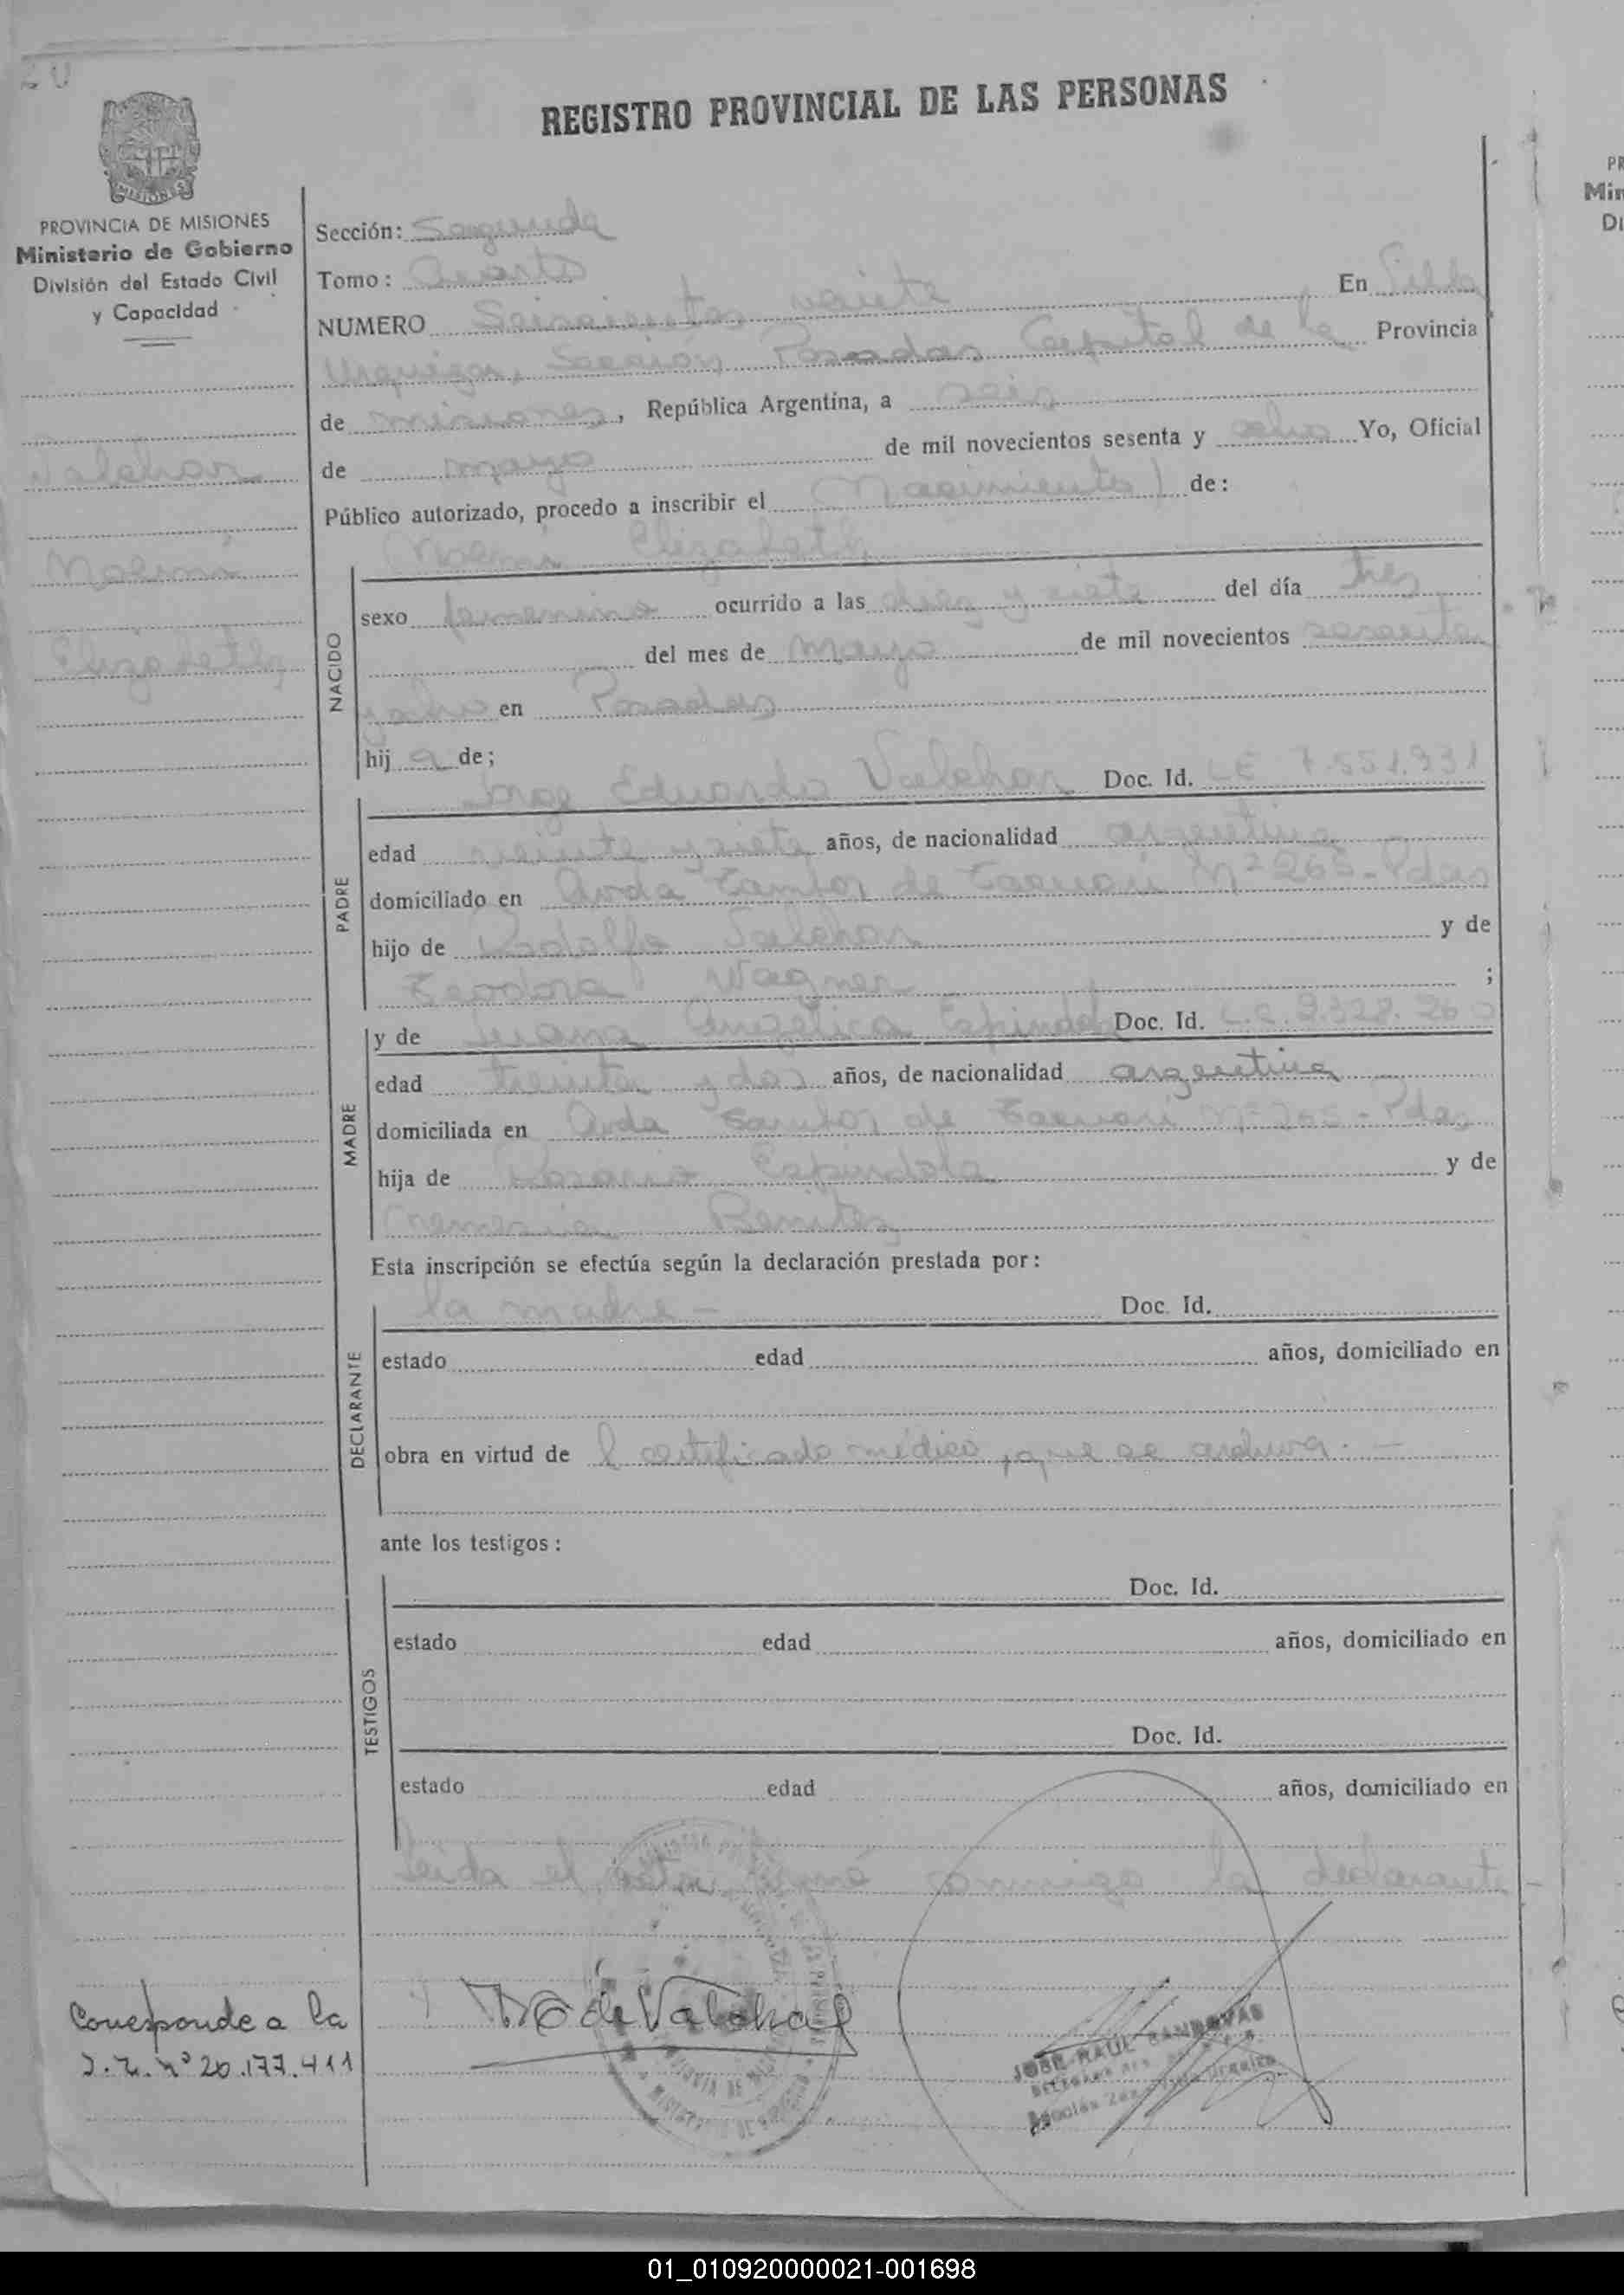 20
REGISTRO PROVINCIAL DE LAS PERSONAS
MISIONES
PROVINCIA DE MISIONES
Ministerio de Gobierno
División del Estado Civil
y Capacidad
Valehar
Noemi
Elizabeth
Sección: Segunda
Tomo: Cuarto
NUMERO Seiscientos veinte En Villa
Urquiza, Sección Posadas Capital de la Provincia
de misiones, República Argentina, a seis
de mayo de mil novecientos sesenta y ocho Yo, Oficial
Público autorizado, procedo a inscribir el (Nacimiento) de:
Noemi Elizabeth
NACIDO
sexo femenino ocurrido a las diez y siete del día tres
del mes de mayo de mil novecientos sesenta
y ocho en Posadas
hij a de;
PADRE
Jorge Eduardo Valehar Doc. Id. LE 7.551.931
edad veinte y siete años, de nacionalidad argentina
domiciliado en Avda Tambor de Tacuari Nº 265 - Pdas
hijo de Rodolfo Valehar y de
Teodora Wagner ;
MADRE
y de Juana Angélica Espindola Doc. Id. L.C. 2.328.260
edad treinta y dos años, de nacionalidad argentina
domiciliada en Avda Tambor de Tacuari Nº 265 - Pdas
hija de Rosario Espindola y de
Nemesia Benitez
Esta inscripción se efectúa según la declaración prestada por:
DECLARANTE
la madre - Doc. Id.
estado edad años, domiciliado en
obra en virtud de l certificado médico, que se archiva. -
ante los testigos:
TESTIGOS
Doc. Id.
estado edad años, domiciliado en
Doc. Id.
estado edad años, domiciliado en
Leida el acta, firmó conmigo la declarante -
de Valehar
JOSE RAUL SANDOVAL
Corresponde a la
D.N. nº 20.177.411
PR
Min
Di
01_010920000021-001698